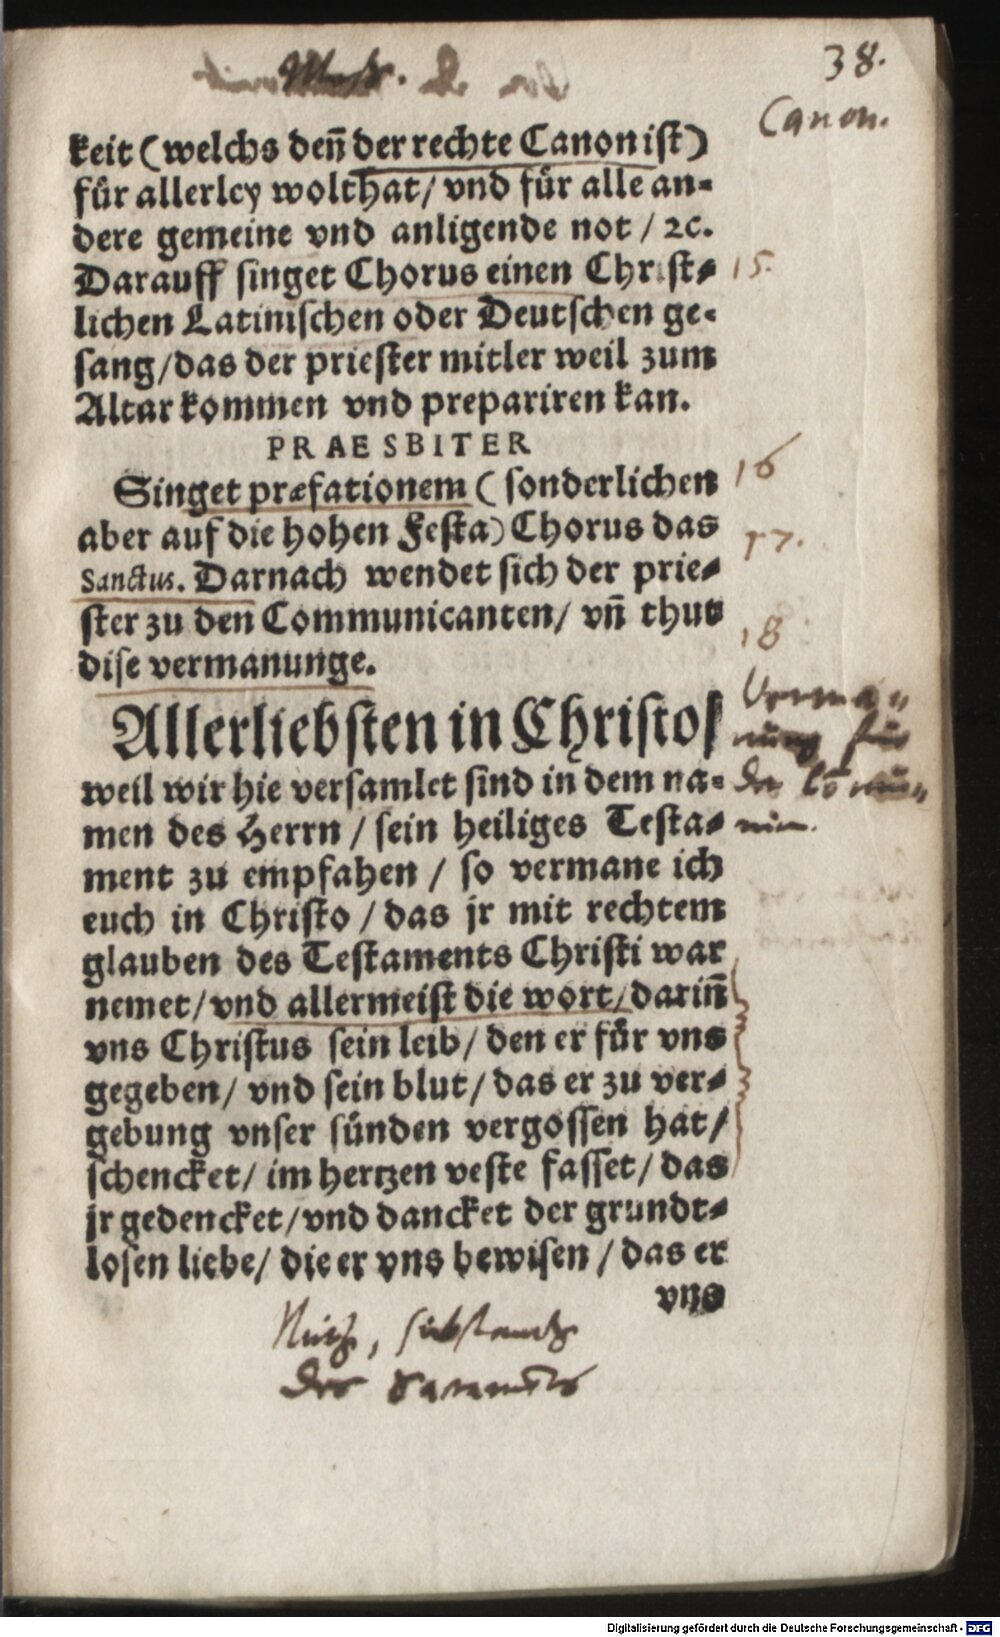 Mess.
38.
Canon.
keit (welchs deñ der rechte Canon ist)
für allerley wolthat/ vnd für alle an⸗
dere gemeine vnd anligende not / ꝛc.
Darauff singet Chorus einen Christ⸗
15.
lichen Latinischen oder Deutschen ge⸗
sang/das der priester mitler weil zum
Altar kommen vnd prepariren kan.
PRAESBITER
Singet præfationem ( sonderlichen
16
aber auf die hohen Festa) Chorus das
17.
Sanctus. Darnach wendet sich der prie⸗
ster zu den Communicanten/ vñ thut
18
dise vermanunge.
Allerliebsten in Christo/
Verma⸗
nung für
der Cõmu⸗
nion.
weil wir hie versamlet sind in dem na⸗
men des Herrn / sein heiliges Testa⸗
ment zu empfahen / so vermane ich
euch in Christo / das jr mit rechtem
glauben des Testaments Christi war
nemet/vnd allermeist die wort/ darinñ
vns Christus sein leib/ den er für vns
gegeben/ vnd sein blut/ das er zu ver⸗
gebung vnser sünden vergossen hat/
schencket/ im hertzen veste fasset/ das
jr gedencket/vnd dancket der grundt⸗
losen liebe/ die er vns bewisen / das er
vns
Nutz, substantz
des Sacramẽts
Digitalisierung gefördert durch die Deutsche Forschungsgemeinschaft - DFG